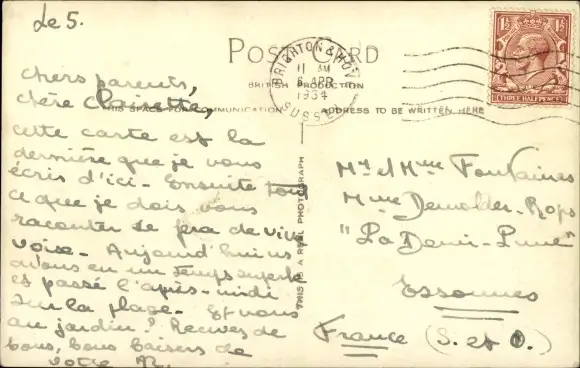 Le 5.
POST CARD
BRIGHTON & HOVE
11 AM
6 APR
1934
SUSSEX
BRITISH PRODUCTION
THIS SPACE FOR COMMUNICATION
ADDRESS TO BE WRITTEN HERE
THIS IS A REAL PHOTOGRAPH
1½ 1½
THREE HALFPENCE
Chers parents,
Chère Clairette,
cette carte est la
dernière que je vous
écris d'ici - Ensuite tout
ce que je dois vous
raconter se fera de vive
voix - Aujourd'hui ns
avons eu un temps superbe
et passé l'après-midi
sur la plage - Et vous
au jardin? Recevez de
bons, bons baisers de
votre
Mr et Mme Fontaines
Mme Demolder-Rops
"La Demi-Lune"
Essonnes
France (S. et O.)